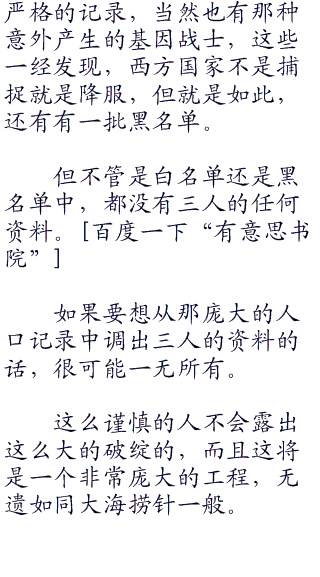 严格的记录，当然也有那种
意外产生的基因战士，这些
一经发现，西方国家不是捕
捉就是降服，但就是如此，
还有有一批黑名单。
但不管是白名单还是黑
名单中，都没有三人的任何
资料。[百度一下“有意思书
院”]
如果要想从那庞大的人
口记录中调出三人的资料的
话，很可能一无所有。
这么谨慎的人不会露出
这么大的破绽的，而且这将
是一个非常庞大的工程，无
遗如同大海捞针一般。